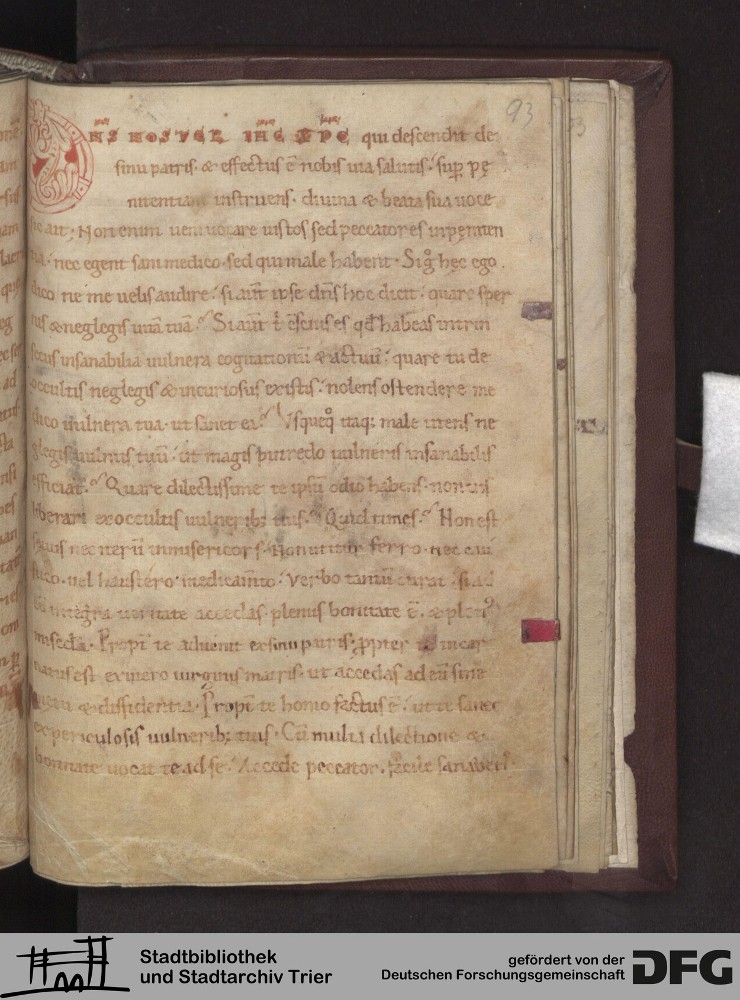 93
DNS NOSTER IHC XPC qui descendit de
sinu patris. & effectus ē nobis uia salutis. sup pę
nitentiam instruens. diuina & beata sua uoce
sic ait; Non enim ueni uocare iustos sed peccatores in pęniten
tia. nec egent sani medico. sed qui male habent. Sig̊ hęc ego
dico ne me uelis audire. si aūt ipse dn̄s hoc dicit. quare sper
nis & neglegis uitā tuā. Si aūt ł cōscius es qd̄ habeas intrin
secus insanabilia uulnera cogitationū & actuū. quare tu de
occultis neglegis & incuriosus existis. nolens ostendere me
dico uulnera tua. ut sanet ea. Vsqueq̊ itaq; male utens ne
glegis uulnus tuū. ut magis putredo uulneris insanabilis
efficiat. Quare dilectissime te ipsū odio habens. non uis
liberari ex occultis uulnerib; tuis. Quid times. Non est
seuus nec uerū inmisericors. Non utitur ferro. nec cau
stico. uel haustero medicam̄to. Verbo tantū curat. si ad
eū uoluntate accedas. plenus bonitate ē. & plen
misedia. Propt te aduenit ex sinu patris. ppter te incar
natus est ex utero uirginis matris. ut accedas ad eū sine
metu & diffidentia. Propt te homo factus ē. ut te sanet
ex periculosis uulnerib; tuis. Cū multa dilectione &
bonitate uocat te ad se. Accede peccator. facile sanaberis
Stadtbibliothek
und Stadtarchiv Trier
gefördert von der
Deutschen Forschungsgemeinschaft
DFG